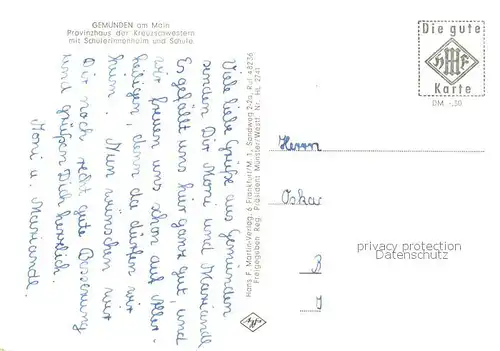 GEMÜNDEN am Main
Provinzhaus der Kreuzschwestern
mit Schülerinnenheim und Schule
Viele liebe Grüße aus Gemünden
senden Dir Moni und Mariandl
Es gefällt uns hier ganz gut, und
wir freuen uns schon auf Aller-
heiligen, denn da dürfen wir
heim. Nun wünschen wir
Dir noch recht gute Besserung
und grüßen Dich herzlich.
Moni u. Mariandl.
Hans F. Martin-Verlag, 6 Frankfurt/M. 1, Sandweg 52a, Ruf 48236
Freigegeben Reg. Präsident Münster/Westf. Nr. HL 2241
Agfa
Die gute
HMF
Karte
DM -.30
Herrn
Oskar
B
J
privacy protection
Datenschutz